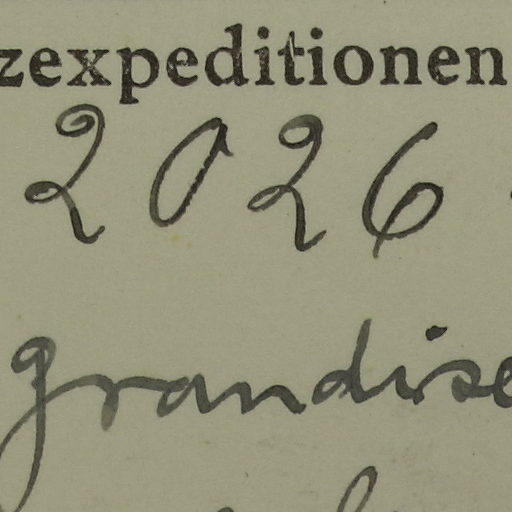 zexpeditionen
2026
grandise